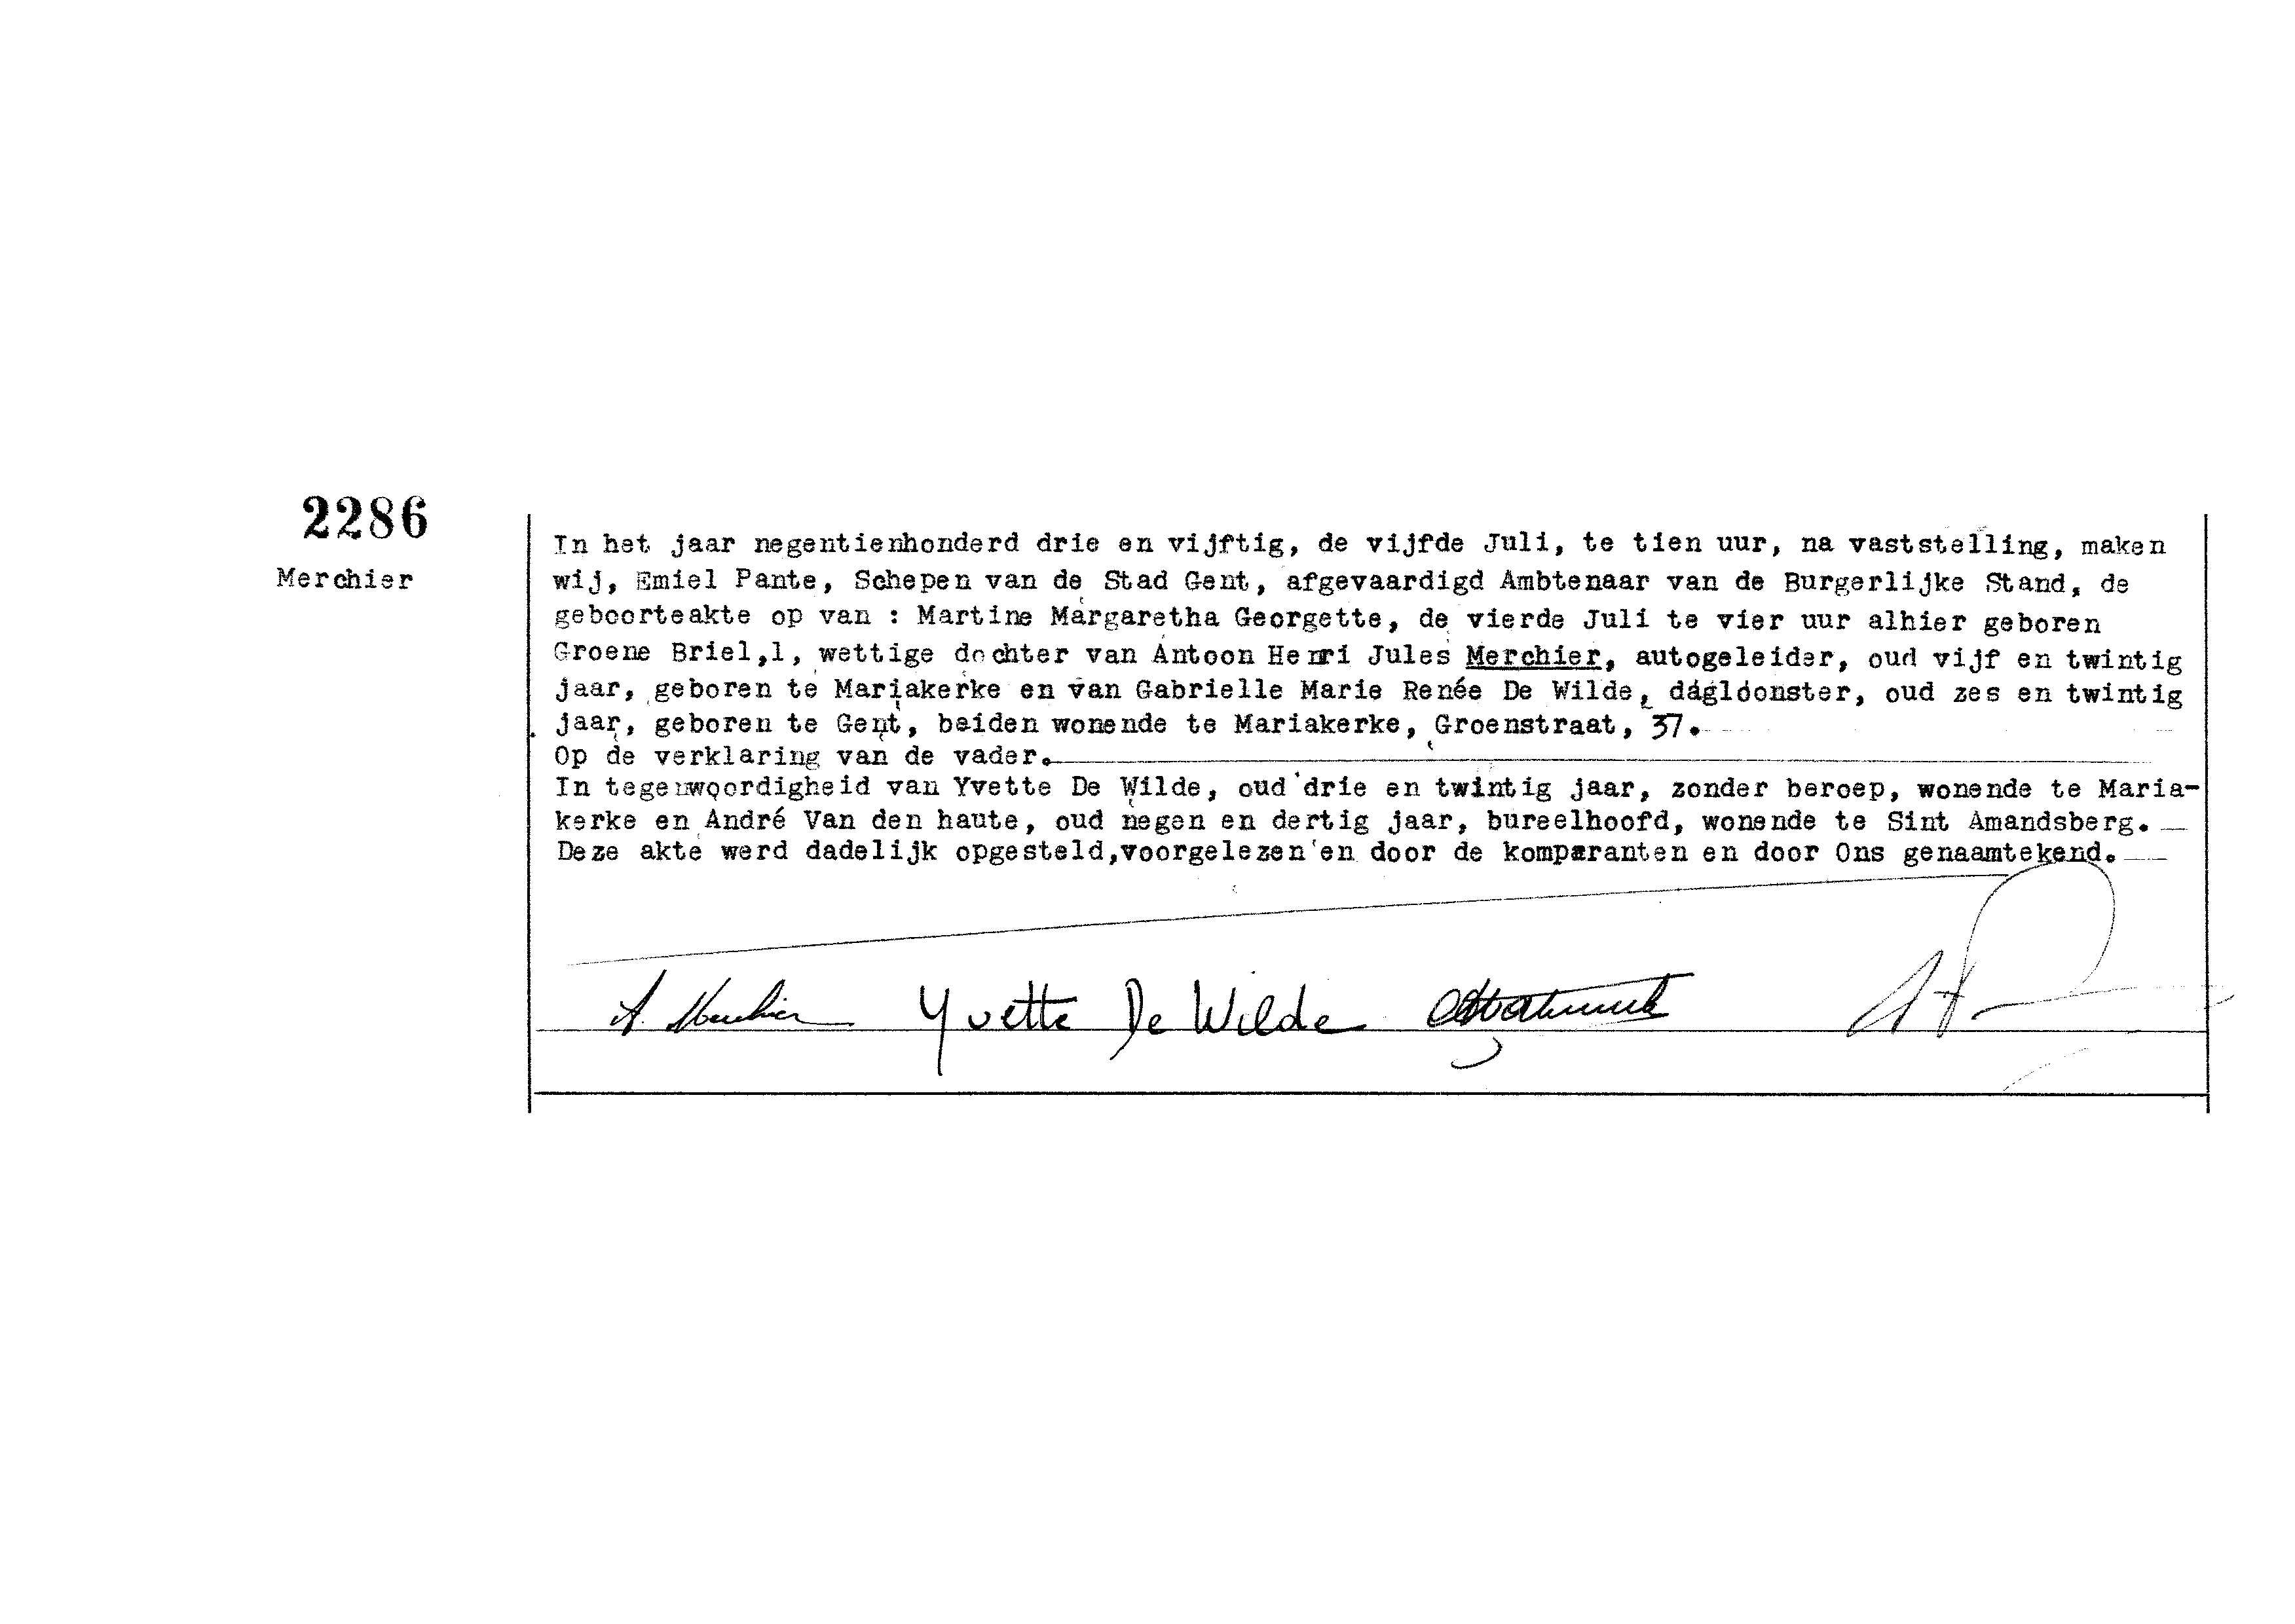 2286
Merchier
In het jaar negentienhonderd drie en vijftig, de vijfde Juli, te tien uur, na vaststelling, maken
wij, Emiel Pante, Schepen van de Stad Gent, afgevaardigd Ambtenaar van de Burgerlijke Stand, de
geboorteakte op van : Martine Margaretha Georgette, de vierde Juli te vier uur alhier geboren
Groene Briel,1, wettige dochter van Antoon Henri Jules Merchier, autogeleider, oud vijf en twintig
jaar, geboren te Mariakerke en van Gabrielle Marie Renée De Wilde, dagloonster, oud zes en twintig
jaar, geboren te Gent, beiden wonende te Mariakerke, Groenstraat, 37.
Op de verklaring van de vader.
In tegenwoordigheid van Yvette De Wilde, oud drie en twintig jaar, zonder beroep, wonende te Maria-
kerke en André Van den haute, oud negen en dertig jaar, bureelhoofd, wonende te Sint Amandsberg.
Deze akte werd dadelijk opgesteld,voorgelezen en door de komparanten en door Ons genaamtekend.
A. Merchier Yvette De Wilde